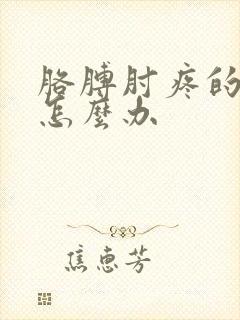 胳膊肘疼的
怎麼办
焦惠芳